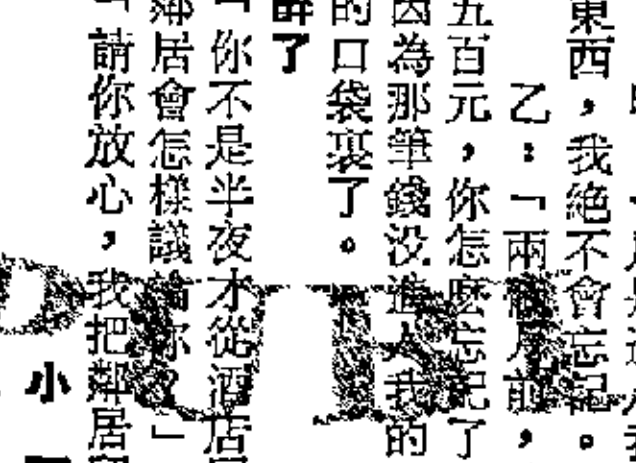 東西，我絕不會忘記。
乙：「兩個月前，
五百元，你怎麼忘記了
因為那筆錢沒進入我的
的口袋裏了。
醉了
「你不是半夜才從酒店
鄰居會怎樣議論你
「請你放心，我把鄰居
小